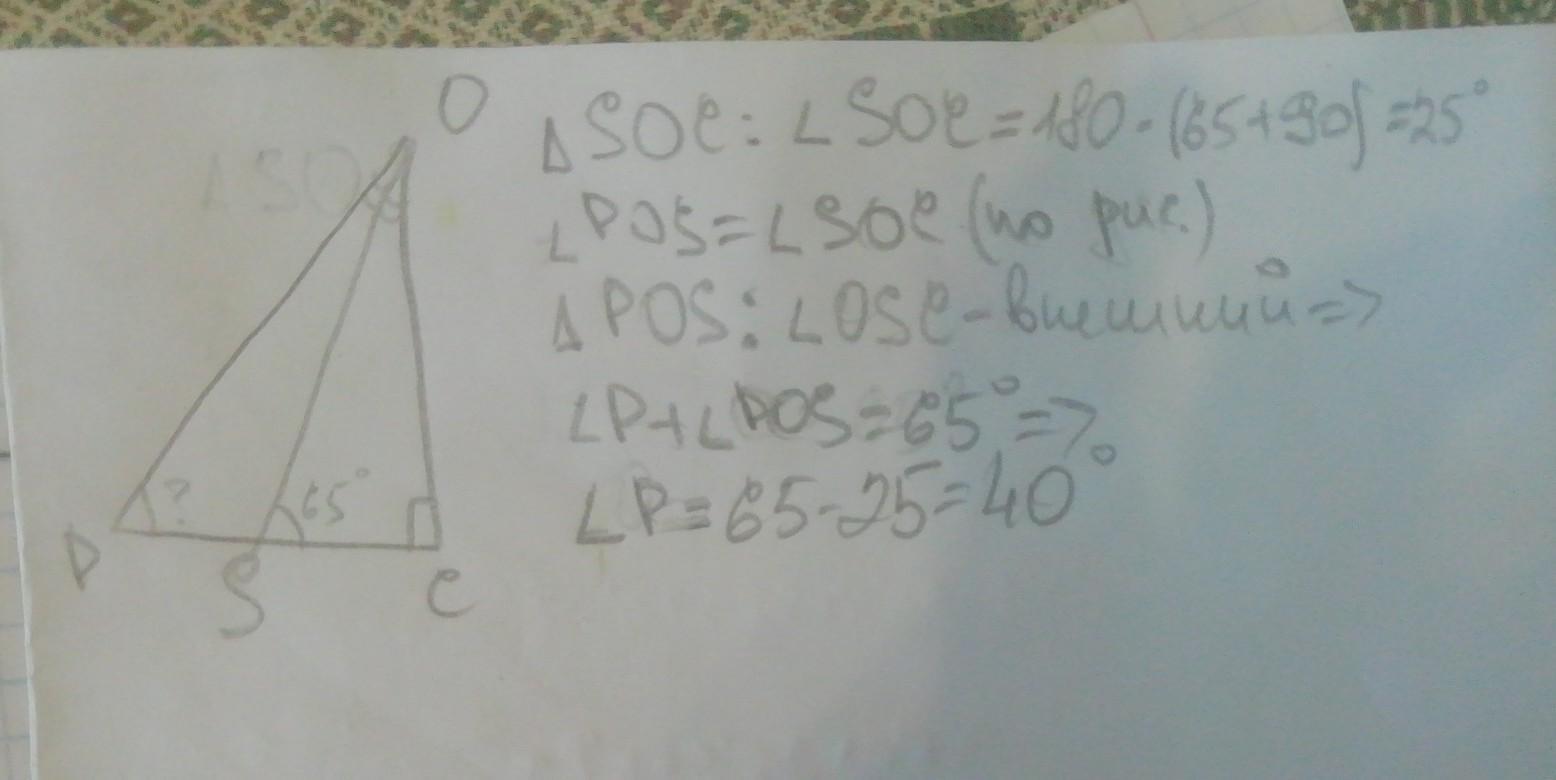 O
ΔSOC: ∠SOC=180-(65+90)=25°
∠POS=∠SOC (по рис.)
ΔPOS: ∠OSC-внешний=>
∠P+∠POS=65°=>
∠P=65-25=40°
? 65°
P S C
∠SO